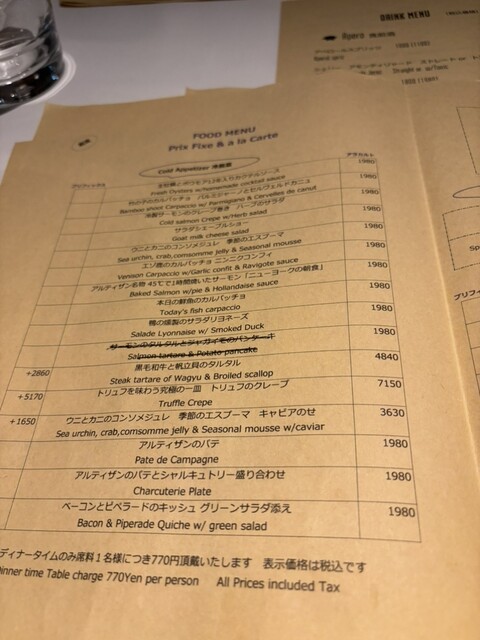 DRINK MENU
Apero
FOOD MENU
Prix Fixe & a la Carte
Cold Appetizer 冷前菜
プリフィックス
アラカルト
1980
Fresh Oysters w/homemade cocktail sauce
1980
Bamboo shoot Carpaccio w/ Parmigiano & Cervelles de canut
冷製サーモンのクレープ巻き ハーブのサラダ
1980
Cold salmon Crepe w/Herb salad
サラダシェーブルショー
1980
Goat milk cheese salad
ウニとカニのコンソメジュレ 季節のエスプーマ
1980
Sea urchin, crab,comsomme jelly & Seasonal mousse
エゾ鹿のカルパッチョ ニンニクコンフィ
1980
Venison Carpaccio w/Garlic confit & Ravigote sauce
アルティザン名物 45℃で1時間焼いたサーモン「ニューヨークの朝食」
1980
Baked Salmon w/pie & Hollandaise sauce
本日の鮮魚のカルパッチョ
1980
Today's fish carpaccio
鴨の燻製のサラダリヨネーズ
1980
Salade Lyonnaise w/ Smoked Duck
サーモンのタルタルとジャガイモのパンケーキ
1980
Salmon tartare & Potato pancake
黒毛和牛と帆立貝のタルタル
4840
+2860
Steak tartare of Wagyu & Broiled scallop
トリュフを味わう究極の一皿 トリュフのクレープ
7150
+5170
Truffle Crepe
ウニとカニのコンソメジュレ 季節のエスプーマ キャビアのせ
3630
+1650
Sea urchin, crab,comsomme jelly & Seasonal mousse w/caviar
アルティザンのパテ
1980
Pate de Campagne
アルティザンのパテとシャルキュトリー盛り合わせ
1980
Charcuterie Plate
ベーコンとピペラードのキッシュ グリーンサラダ添え
1980
Bacon & Piperade Quiche w/ green salad
ディナータイムのみ席料1名様につき770円頂戴いたします 表示価格は税込です
inner time Table charge 770Yen per person All Prices included Tax